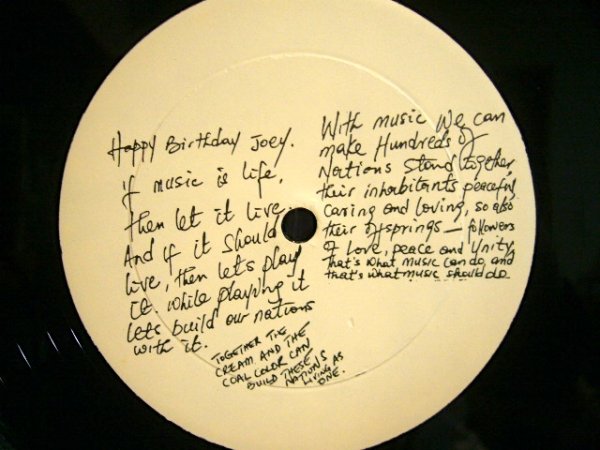 Happy Birthday Joey.
if music is life,
then let it live.
And if it should
live, then lets play
it while playing it
lets build our nations
with it.
TOGETHER THE
CREAM AND THE
COAL COLOR CAN
BUILD THESE
NATIONS
LIVING AS
ONE.
With music We can
make Hundreds of
Nations Stand together,
their inhabitants peaceful
caring and loving, so also
their offsprings — followers
of Love, peace and Unity,
that's what music can do, and
that's what music should do